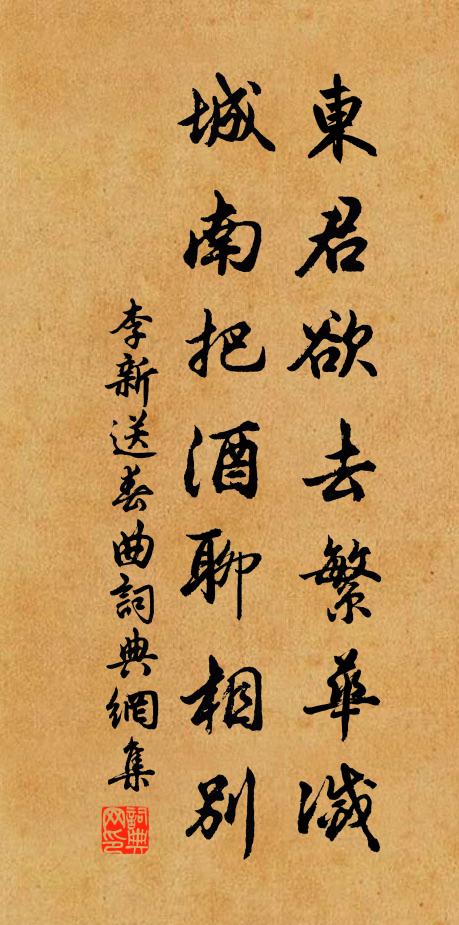 東君欲去繁華滅
城南把酒聊相別
李新送春曲詞典網集
詞典
网印